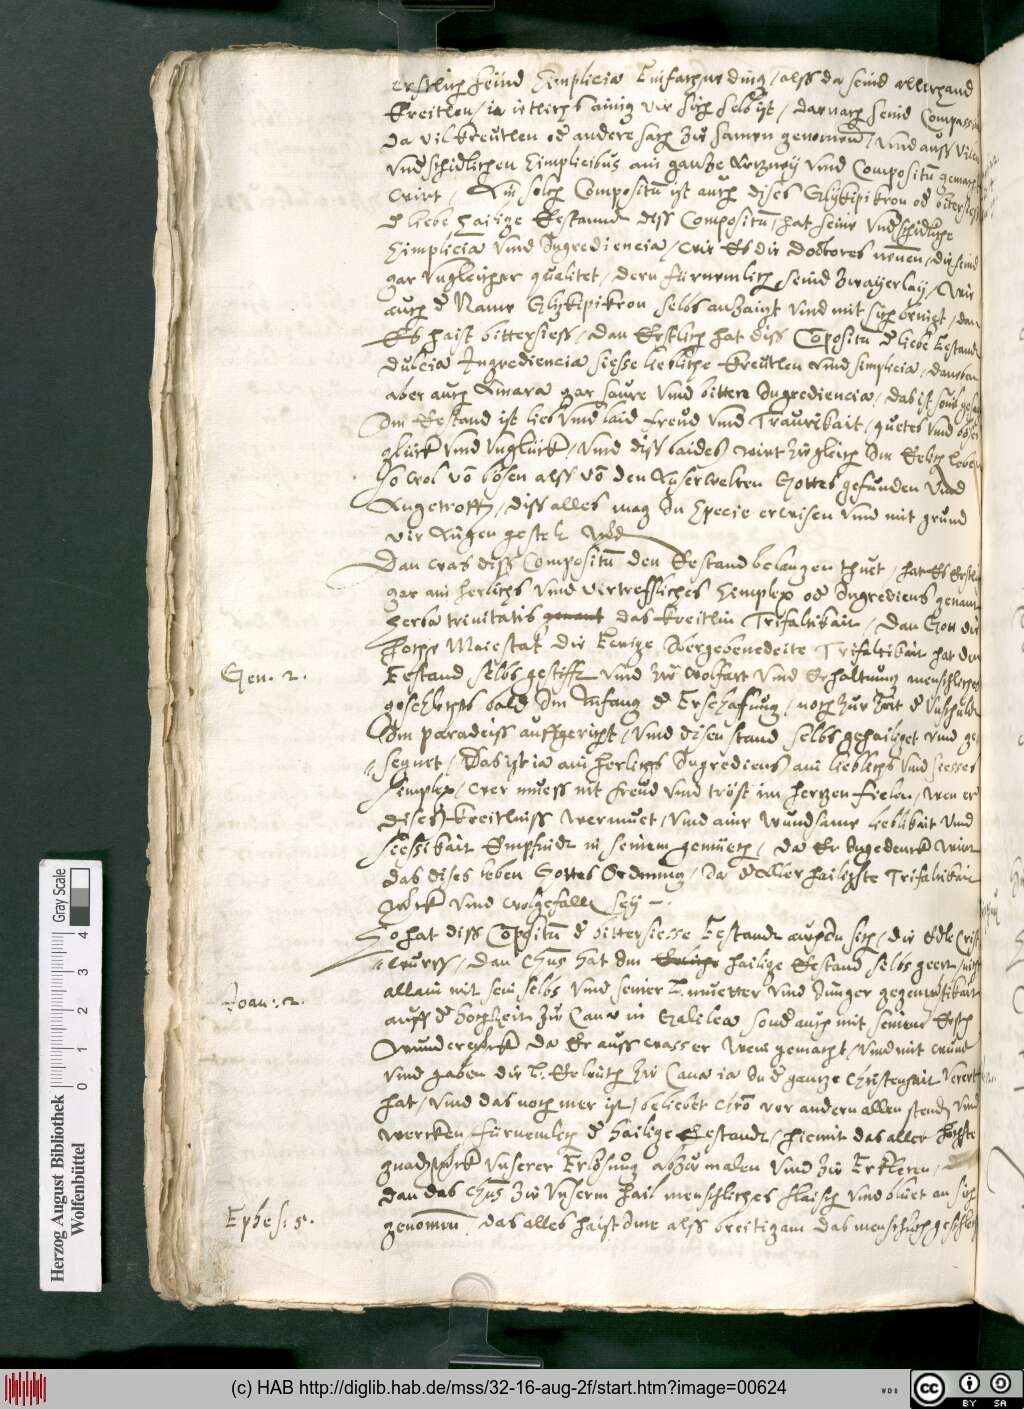 Erstlich seind Simplicia Einfache ding / alss da seind allerhand
Kreitlen / ia ietlichs ainig vir sich selbst / darnach seind Composita
da vil Kreutlen od andere sach zu samen genomen / vnd auss vilen
vnd schidlichen Simplicibus ain gantze Artzney vnd Compositu gemacht
wirt / Ain solch Compositu ist auch dises Glykipikron od bitersiess
d liebe hailige Eestannd diss Compositu hat seine vndschidliche
Simplicia vnnd Ingrediencia / wie Es die doctores nennen / die seind
gar vngleicher qualitet / dern fürnemlich seind zwayerlay / Wie
auch d Name Glykipikron selbs anzaigt vnnd mit sich bringt / dan
Es haist bittersiess / dan Erstlich hat diss Copositu d liebe Eestand
dulcia Ingrediencia siesse liebliche Kreutlen vnd simplicia / daneben
aber auch Amara gar saure vnd bittere Ingrediencia / das ist souil gesagt
Im Eestand ist lieb vnnd laid freud vnnd Traurikait / guetes vnd böses
glück vnnd vnglück / vnnd diss baides wirt zugleich Im Eelich leben
so wol vo bösen alss vo den Ausserwelten Gottes gefunden vnnd
Angetroffen / diss alles mag In specie erwisen vnnd mit grund
vir Augen gestelt werd
Dan was diss Compositu den Eestand belangen thuet / hat Es Erstlich
gar ain herlichs vnnd vertreffliches Simplex od Ingrediens genant
herba trinitatis genant das Kreitlin Trifaltikait / Dan Gott die
hoche Maiestat die Eewige Abergebenedeite Trifaltikait hat den
Gen. 2. Eestand selbs gestifft vnnd zu wolfart vnnd Erhaltung menschliches
geschlechts bald Im Anfang d Erschaffung / noch zur Zeit d vnschuld
Im paradeiss auffgericht / vnnd disen stand selbs gehailiget vnnd ge=
segnet / Das ist ia ain herlichs Ingrediens ain lieblichs vnnd siesses
Simplex / wer muess nit freud vnnd tröst im hertzen fielen / wen er
dises Kreitlins wermuet / vnnd aine wundsame lieblikait vnd
siessikait Empfindt in seinem gemüeth / da Er Ingedenck wirt
das dises leben Gottes Ordnung / Ja d Aller hailigste Trifaltikait
werck vnnd wolgefallen sey
So hat diss Copositu d bittersiesse Eestandt auch In sich / die Edle Crist
wurtz / dan Chus hat den Eeliche hailige Eestand selbs geert / nit
Joan: 2. allain mit sein selbs vnnd seiner L. muetter vnnd Junger gegenwirtikait
auff d hochzeit zu Cana in Galilea sond auch mit seinem Ersten
wunderwerck da Er auss wasser wein gemacht / vnnd mit wein
vnnd gaben die L. Eeleuth zu Cana ia In d gantze Christenhait vereert
hat / vnnd das noch mer ist / beliebet chro vor andern allen stenden vnnd
wercken fürnemlich d hailige Eestandt / hiemit das aller höchste
gnadwerck vnserer Erlösung abzumalen vnnd zu Erkleren /
dan das Chus zu vnserm hail menschliches flaisch vnnd bluet an sich
Ephes: 5. genomen das alles haist Ime alss breitigam das menschlich geschlecht
Herzog August Bibliothek
Wolfenbüttel
0 1 2 3 4
Gray Scale
(c) HAB http://diglib.hab.de/mss/32-16-aug-2f/start.htm?image=00624
WDB
cc
BY SA